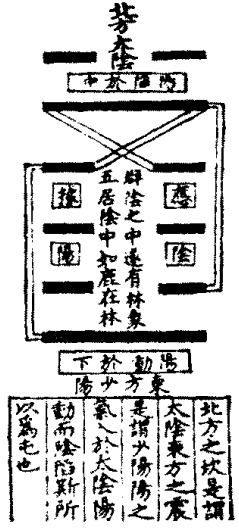 北方太陰
陽陷於中
應陰
據陽
群陰之中遂有林象
五居陰中如鹿在林
陽動於下
東方少陽
北方之坎是謂
太陰東方之震
是謂少陽陽之
氣入於太陰陽
動而陰陷斯所
以為屯也